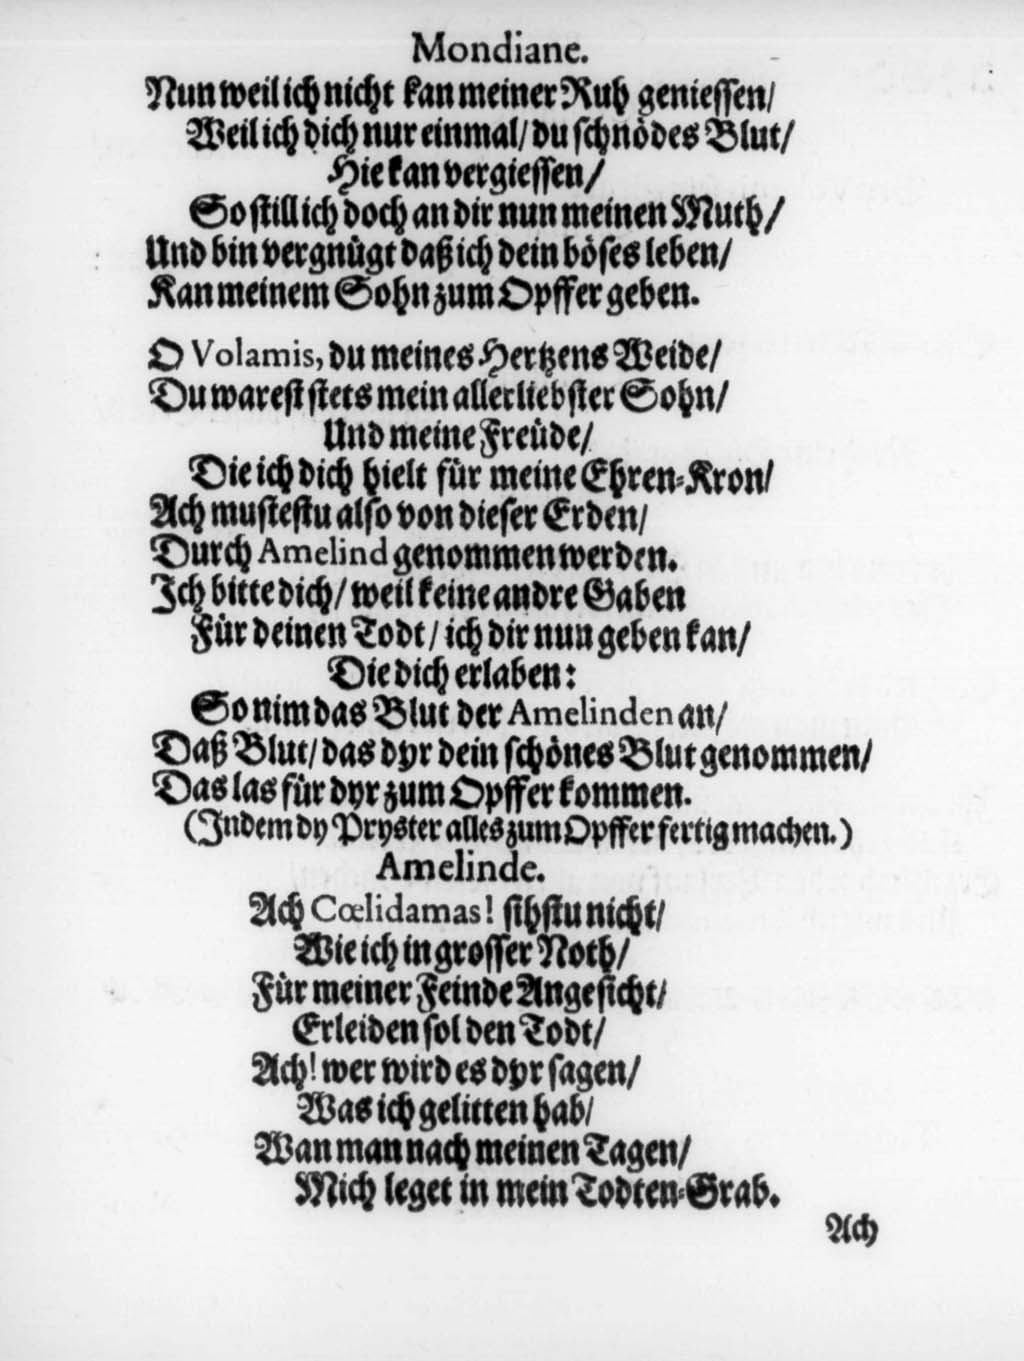 Mondiane.
Nun weil ich nicht kan meiner Ruh geniessen/
Weil ich dich nur einmal/ du schnödes Blut/
Hie kan vergiessen/
So still ich doch an dir nun meinen Muth/
Und bin vergnügt daß ich dein böses leben/
Kan meinem Sohn zum Opffer geben.
O Volamis, du meines Hertzens Weide/
Du warest stets mein allerliebster Sohn/
Und meine Freüde/
Die ich dich hielt für meine Ehren-Kron/
Ach mustestu also von dieser Erden/
Durch Amelind genommen werden.
Ich bitte dich/ weil keine andre Gaben
Für deinen Todt/ ich dir nun geben kan/
Die dich erlaben:
So nim das Blut der Amelinden an/
Daß Blut/ das dyr dein schönes Blut genommen/
Das las für dyr zum Opffer kommen.
(Indem dy Pryster alles zum Opffer fertig machen.)
Amelinde.
Ach Cœlidamas! sihstu nicht/
Wie ich in grosser Noth/
Für meiner Feinde Angesicht/
Erleiden sol den Todt/
Ach! wer wird es dyr sagen/
Was ich gelitten hab/
Wan man nach meinen Tagen/
Mich leget in mein Todten-Grab.
Ach